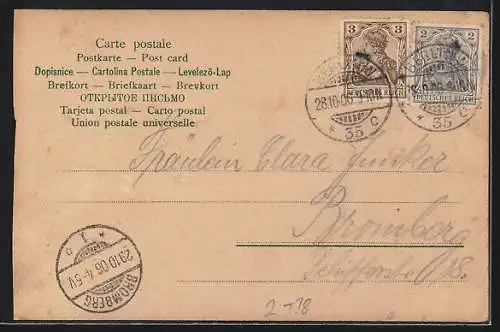 Carte postale
Postkarte — Post card
Dopisnice — Cartolina Postale — Levelező-Lap
Brefkort — Briefkaart — Brevkort
ОТКРЫТОЕ ПИСЬМО
Tarjeta postal — Carto postal
Union postale universelle
3 3
2 2
DEUTSCHES REICH
28.10.06
35 C
35 C
Fräulein Clara Junker
Bromberg
29.10.06.4-5V.
BROMBERG